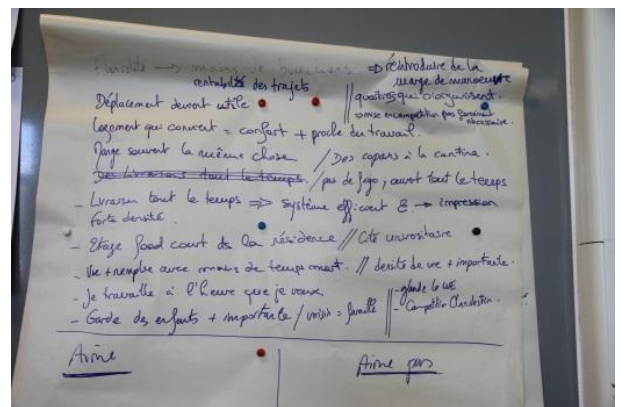 Fluidité → moins de bouchons ⇒ réintroduire de la
rentabilité des trajets // marge de manoeuvre
Déplacement devant utile quartiers qui s'organisent.
⇒ mise en compétition pas forcément nécessaire.
Logement qui convient = confort + proche du travail.
Mange souvent la même chose / Des copains à la cantine.
Des livraisons tout le temps / pas de frigo, ouvert tout le temps
- Livraison tout le temps ⇒ système efficient E. → impression
forte densité
- Etage food court ds la résidence // Cité universitaire
- Vie + remplie avec moins de temps mort. // densité de vie + importante.
- Je travaille à l'heure que je veux // - glande le WE
- Garde des enfants + importante / voisin = famille - Compétition Clandestin.
Aime Aime pas